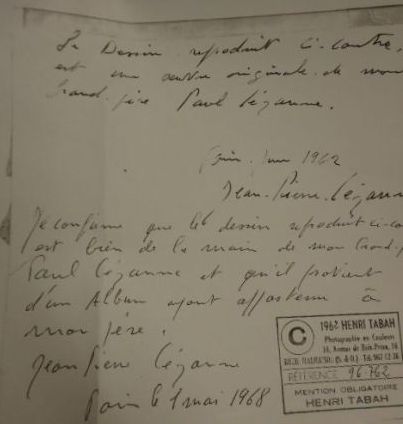 Le Dessin reproduit ci-contre,
est une œuvre originale de mon
Grand-père Paul Cézanne.
Juin 1962
Jean-Pierre Cézanne
Je confirme que le dessin reproduit ci-co
est bien de la main de mon Grand-p
Paul Cézanne et qu'il provient
d'un Album ayant appartenu à
mon père.
Jean Pierre Cézanne
Paris le 1 mai 1968
C
1962 HENRI TABAH
Photographie en Couleurs
RÉFÉRENCE 96762
MENTION OBLIGATOIRE
HENRI TABAH